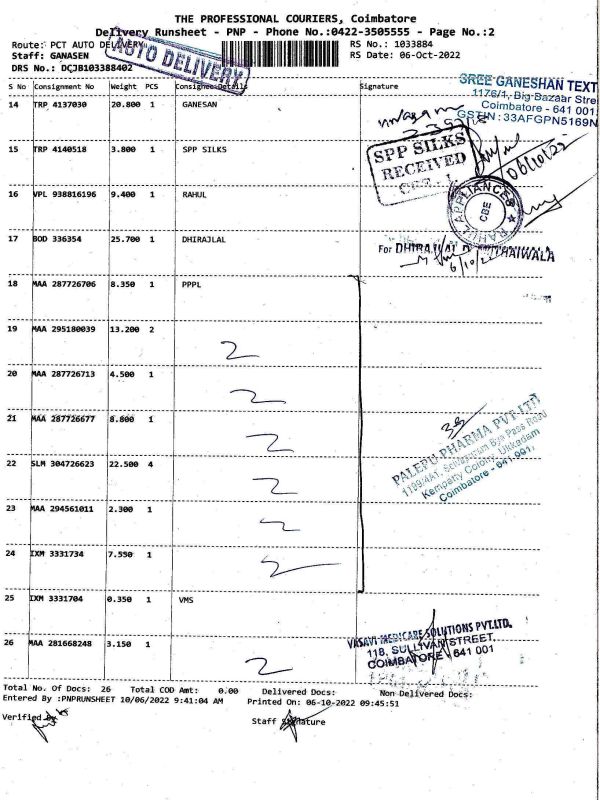 THE PROFESSIONAL COURIERS, Coimbatore
Delivery Runsheet - PNP - Phone No.:0422-3505555 - Page No.:2
Route: PCT AUTO DELIVERY
RS No.: 1033884
Staff: GANASEN
RS Date: 06-Oct-2022
DRS No.: DCJB103388402
AUTO DELIVERY
S No Consignment No Weight PCS Consignee Details Signature
14 TRP 4137030 20.800 1 GANESAN
SREE GANESHAN TEXT
1176/1, Big Bazaar Stre
Coimbatore - 641 001
GSTIN : 33AFGPN5169N
15 TRP 4140518 3.800 1 SPP SILKS
SPP SILKS
RECEIVED
CBE - 1
06/10/22
16 VPL 938816196 9.400 1 RAHUL
RAHUL APPLIANCES
CBE
17 BOD 336354 25.700 1 DHIRAJLAL
For DHIRAJLAL MITHAIWALA
6/10/22
18 MAA 287726706 8.350 1 PPPL
19 MAA 295180039 13.200 2
20 MAA 287726713 4.500 1
21 MAA 287726677 8.800 1
22 SLM 304726623 22.500 4
PALEPU PHARMA PVT.LTD
1199/4A1, Sivagurum Bye Pass Road
Kempatty Colony, Ukkadam
Coimbatore - 641 001.
23 MAA 294561011 2.300 1
24 IXM 3331734 7.550 1
25 IXM 3331704 0.350 1 VMS
VASAVI MEDICARE SOLUTIONS PVT.LTD.
11B, SULLIVAN STREET,
COIMBATORE - 641 001
26 MAA 281668248 3.150 1
Total No. Of Docs: 26 Total COD Amt: 0.00 Delivered Docs: Non Delivered Docs:
Entered By :PNPRUNSHEET 10/06/2022 9:41:04 AM Printed On: 06-10-2022 09:45:51
Verified By
Staff Signature